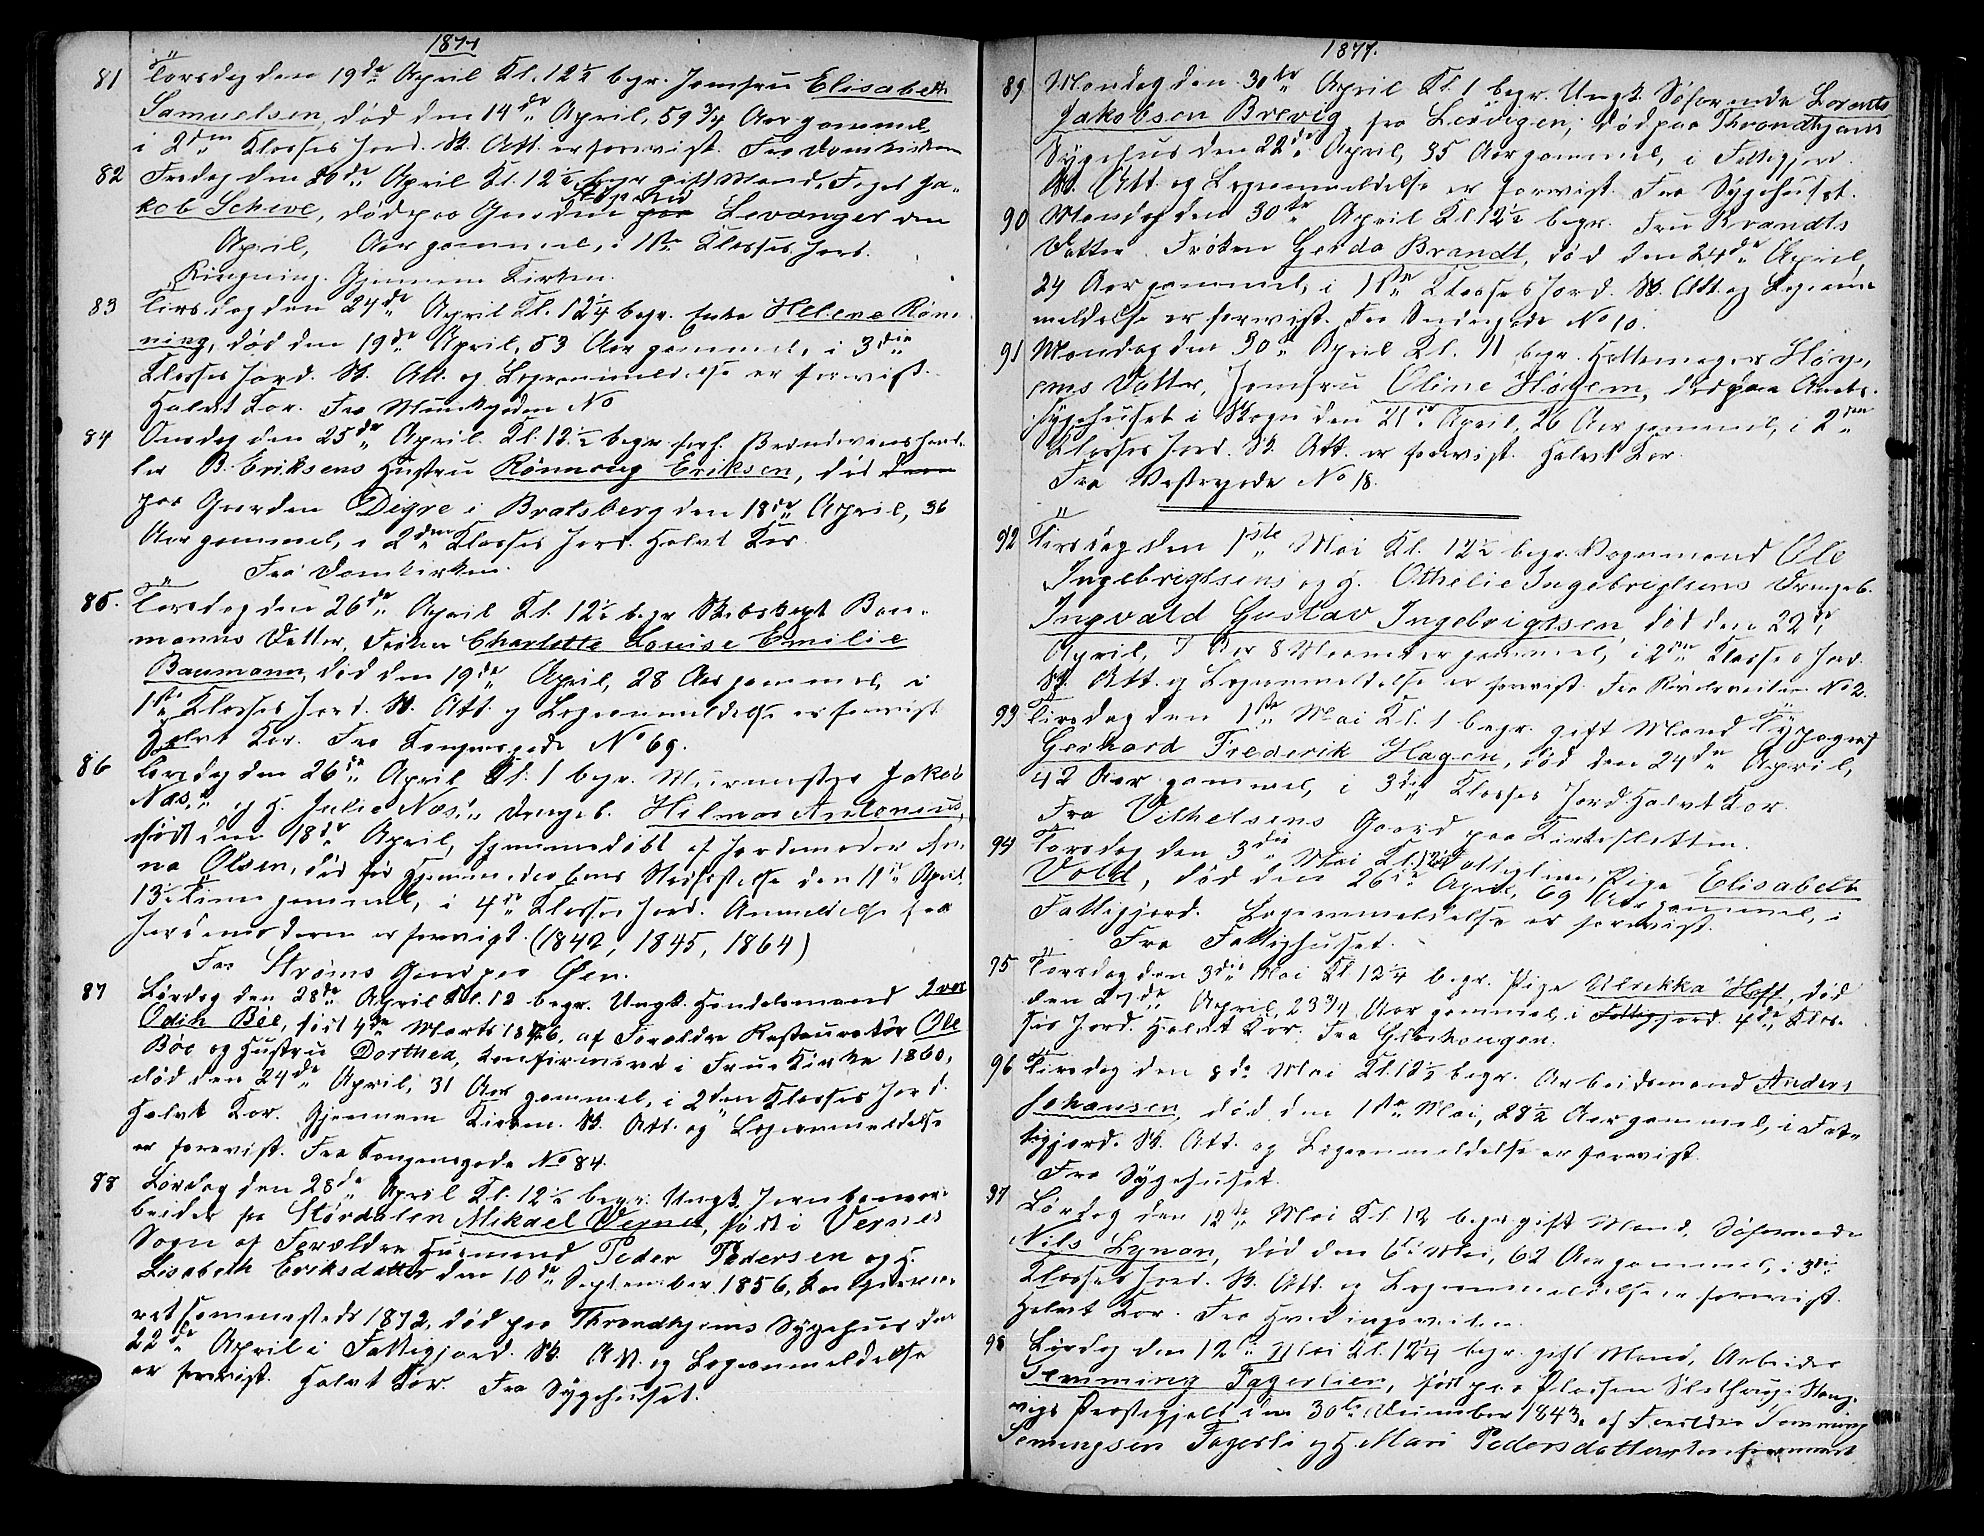 1877
81 Torsdag den 19de April Kl. 12½ begr. Jomfru Elisabeth
Samuelsen, død den 14de April, 59 3/4 Aar gammel,
i 2den Klasses Jord. Sk. Att. er forevist. Fra Domkirken
82 Fredag den 20de April Kl. 12½ begr. gift Mand, Foged Ja-
kob Scheve, død paa Gaarden Levanger den
April, Aar gammel, i 1ste Klasses Jord.
Ringning. Gjennem Kirken.
83 Tirsdag den 24de April Kl. 12¼ begr. Enke Helene Røn-
ning, død den 19de April, 83 Aar gammel, i 3die
Klasses Jord. Sk. Att. og Lægeanmeldelse er forevist.
Halvt Kor. Fra Munkegaden No
84 Onsdag den 25de April Kl. 12½ begr. forh. Brændevinshand-
ler B. Eriksens Hustru Rønnaug Eriksen, død
paa Gaarden Digre i Bratsberg den 18de April, 36
Aar gammel, i 2den Klasses Jord. Halvt Kor.
Fra Domkirken.
85. Torsdag den 26de April Kl. 12½ begr. Skibskapt. Bau-
manns Datter, Frøken Charlotte Louise Emilie
Baumann, død den 19de April, 28 Aar gammel, i
1ste Klasses Jord. Sk. Att. og Lægeanmeldelse er forevist
Halvt Kor. Fra Kongensgade No 69.
86 Torsdag den 26de April Kl. 1 begr. Murmester Jakob
Næs, og H. Julie Næs's Drengeb. Hilmar Antonius,
født den 18de April, hjemmedøbt af Jordemoder
na Olsen, død før Hjemmedaabens Stadfæstelse den 19de April,
13 Timer gammel, i 4de Klasses Jord. Anmeldelse fra
Jordemoderen er forevist. (1842, 1845, 1864)
Fra Strøms Gaard paa Øen.
87 Lørdag den 28de April Kl. 12 begr. Ungk. Handelsmand Ivar
Odin Bøe, født 4de Marts 1846, af Forældre Restauratør Ole
Bøe og Hustru Dorthea, konfirmeret i Frue Kirke 1860,
død den 24de April, 31 Aar gammel, i 2den Klasses Jord.
Halvt Kor. Gjennem Kirken. Sk. Att. og Lægeanmeldelse
er forevist. Fra Kongensgade No 84.
88 Lørdag den 28de April Kl. 12½ begr. Ungk. Jernbanear-
beider fra Størdalen Mikael Vernes, født i Vernes
Sogn af Forældre Husmand Peder Pedersen og H.
Lisabeth Eriksdatter den 10de September 1856, konfirme-
ret sammesteds 1872, død paa Throndhjems Sygehus den
22de April i Fattigjord. Sk. Att. og Lægeanmeldelse
er forevist. Halvt Kor. Fra Sygehuset.
1877.
89 Mandag den 30te April Kl. 1 begr. Ungk. Søfarende Lorents
Jakobsen Brevig fra Lervigen, død paa Throndhjems
Sygehus den 22de April, 35 Aar gammel, i Fattigjord.
Sk. Att. og Lægeanmeldelse er forevist. Fra Sygehuset.
90 Mandag den 30te April Kl 12½ begr. Fru Brandts
Datter Frøken Gerda Brandt, død den 24de April,
24 Aar gammel, i 1ste Klasses Jord. Sk. Att. og Lægean-
meldelse er forevist. Fra Søndregade No 10.
91 Mandag den 30te April Kl. 11 begr. Hattemager Høy-
ems Datter, Jomfru Oline Høyem, død paa Amts-
sygehuset i Skogn den 21de April, 26 Aar gammel, i 2den
Klasses Jord. Sk. Att. er forevist. Halvt Kor.
Fra Vestregade No 18.
92 Tirsdag den 1ste Mai Kl. 12½ begr. Vognmand Ole
Ingebrigtsens og H. Othelie Ingebrigtsens Drengeb.
Ingvald Gustav Ingebrigtsen, død den 22de
April, 7 Aar 8 Maaneder gammel, i 2den Klasses Jord.
Sk. Att. og Lægeanmeldelse er forevist. No 2.
93 Tirsdag den 1ste Mai Kl. 1 begr. gift Mand Typograf
Gerhard Frederik Hagen, død den 24de April,
42 Aar gammel, i 3die Klasses Jord. Halvt Kor.
Fra Vilhelsens Gaard paa Kirkesletten.
94 Torsdag den 3die Mai Kl. 12 Fattiglem, Pige Elisabeth
Vold, død den 26de April, 69 Aar gammel, i
Fattigjord. Lægeanmeldelse er forevist.
Fra Fattighuset.
95 Torsdag den 3die Mai Kl 12¼ begr. Pige Ulrikka Hoff, død
den 27de April, 23 3/4 Aar gammel, i Fattigjord 4de Klas-
ses Jord. Halvt Kor. Fra Gløshaugen.
96 Tirsdag den 8de Mai Kl. 12½ begr. Arbeidsmand Anders
Johansen, død den 1ste Mai, 28½ Aar gammel, i Fat-
tigjord. Sk. Att. og Lægeanmeldelse er forevist.
Fra Sygehuset.
97 Lørdag den 12te Mai Kl. 12 begr. gift Mand, Søfarende
Nils Lynan, død den 6te Mai, 62 Aar gammel, i 3die
Klasses Jord. Sk. Att. og Lægeanmeldelse er forevist.
Halvt Kor. Fra Hvedingsveiten.
98 Lørdag den 12te Mai Kl. 12¼ begr. gift Mand, Arbeider
Temming Fagerlien, født paa Pladsen Stang-
vigs Præstegjeld den 30te December 1843, af Forældre Temming
Temingsen Fagerli og H. Mari Pedersdatter, konfirmeret